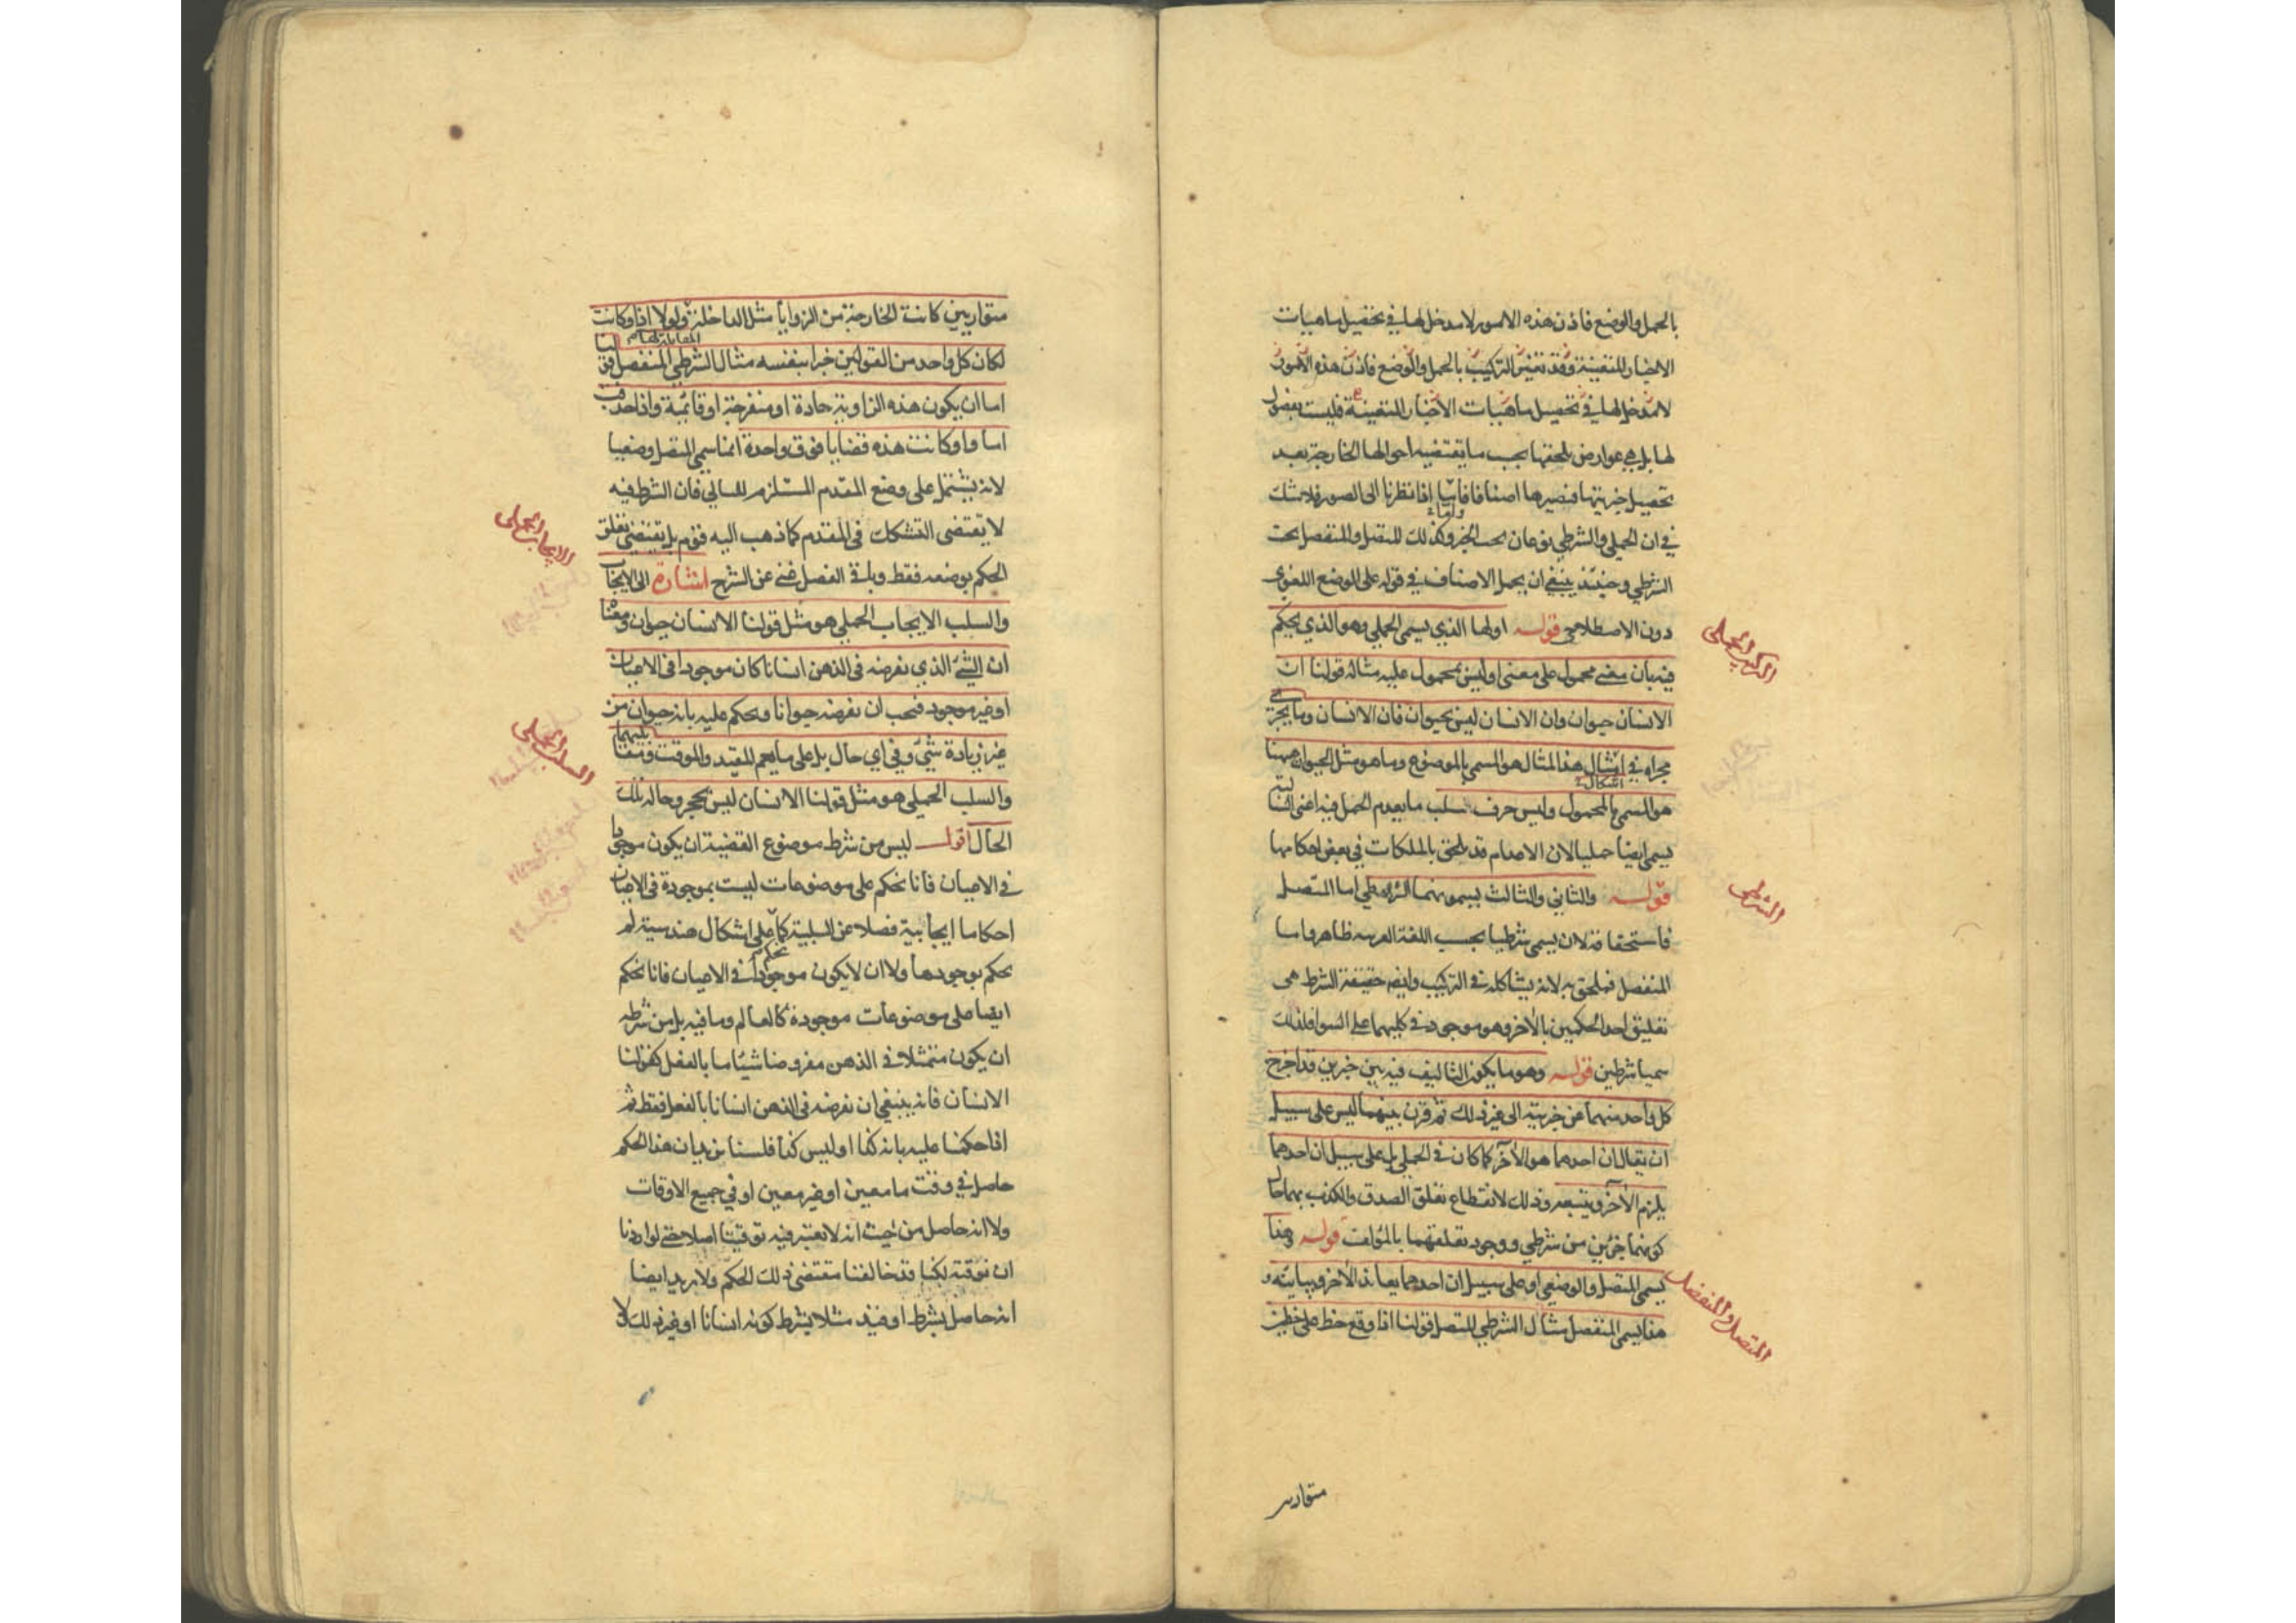 بالحمل والوضع فاذن هذه الامور لا مدخل لها فى تحصيل ماهيات
الاخبار المتعينة وقد تغيّر التركيب بالحمل والوضع فاذن هذه الامور
لا مدخل لها فى تحصيل ماهيات الاخبار المتعينة فليست بفصول
لها بل هى عوارض تلحقها بحسب ما يقتضيه احوالها الخارجة بعد
تحصيل خبريتها فتصيرها اصنافا فاما اذا نظرنا الى الصور فلا شك
فى ان الحملى والشرطى نوعان تحت الخبر وكذلك المتصل والمنفصل تحت
الشرطى وحينئذ ينبغى ان يحمل الاصناف فى قوله على الوضع اللغوى
دون الاصطلاحى قوله اولها الذي يسمى الحملى وهو الذي يحكم
فيه بان معنى محمول على معنى او ليس بمحمول عليه مثاله قولنا ان
الانسان حيوان وان الانسان ليس بحيوان فان الانسان وما يجرى
مجراه فى امثال هذا المثال هو المسمى بالموضوع وما هو مثل الحيوان ههنا
اشكال
هو المسمى بالمحمول وليس حرف سلب ما يعدم الحمل فيه اعنى السالبة
يسمى ايضا حمليا لان الاعدام قد تلحق بالملكات فى بعض احكامها
قوله والثانى والثالث يسمونهما الشرطى اما المتصل
فاستحقاقه لان يسمى شرطيا بحسب اللغة العربيه ظاهر واما
المنفصل فملحق به لانه يشاكله فى التركيب وايضا حقيقة الشرط هى
تعليق احد الحكمين بالآخر وهو موجود فى كليهما على السوا فلذلك
سميا شرطين قوله وهو ما يكون التاليف فيه بين خبرين قد اخرج
كل واحد منهما عن خبريته الى غير ذلك ثم قرن بينهما ليس على سبيل
ان يقال ان احدهما هو الآخر كما كان فى الحملى بل على سبيل ان احدهما
يلزم الآخر ويتبعه وذلك لانقطاع تعلق الصدق والكذب بهما حال
كونهما جزئين من شرطى ووجود تعلقهما بالمؤلف قوله وهذا
يسمى المتصل والوضعى او على سبيل ان احدهما يعاند الآخر ويباينه و
هذا يسمى المنفصل مثال الشرطى المتصل قولنا اذا وقع خط على خطين
متوازيين
التركيب الحملى
الشرطى
المتصل والمنفصل
متوازيين كانت الخارجة من الزوايا مثل الداخلة ولولا اذا وكانت
المقابلة لها
لكان كل واحد من القولين خبرا بنفسه مثال الشرطى المنفصل قولنا
اما ان يكون هذه الزاوية حادة او منفرجة او قائمة واذا حذفت
اما واو كانت هذه قضايا فوق واحدة انما سمى المتصل وضعيا
لانه يشتمل على وضع المقدم المستلزم للتالى فان الشرط فيه
لا يقتضى التشكك فى المقدم كما ذهب اليه قوم بل يقتضى تعلق
الحكم بوضعه فقط وباقى الفصل غنى عن الشرح اشارة الى الايجاب
والسلب الايجاب الحملى هو مثل قولنا الانسان حيوان ومعناه
ان الشئ الذي نفرضه فى الذهن انسانا كان موجودا فى الاعيان
او غير موجود فيجب ان نفرضه حيوانا ونحكم عليه بانه حيوان من
غير زيادة متى وفى اي حال بل على ما يعم المقيد والموقت ومقابليهما
والسلب الحملى هو مثل قولنا الانسان ليس بحجر وحاله تلك
الحال اقول ليس من شرط موضوع القضية ان يكون موجودا
فى الاعيان فانا نحكم على موضوعات ليست بموجودة فى الاعيان
احكاما ايجابية فضلا عن السلبية كما على اشكال هندسية لم
نحكم
نحكم بوجودها ولا ان لا يكون موجودا فى الاعيان فانا نحكم
ايضا على موضوعات موجودة كالعالم وما فيه بل من شرطه
ان يكون متمثلا فى الذهن مفروضا شيئا ما بالفعل كقولنا
الانسان فانه ينبغى ان نفرضه فى الذهن انسانا بالفعل فقط ثم
اذا حكمنا عليه بانه كذا او ليس كذا فلسنا نريد ان هذا الحكم
حاصل فى وقت ما معين او غير معين او فى جميع الاوقات
ولا انه حاصل من حيث انه لا نعتبر فيه توقيتا اصلا حتى لو اردنا
ان نوقته لكنا قد خالفنا مقتضى ذلك الحكم ولا نريد ايضا
انه حاصل بشرط او قيد مثلا بشرط كونه انسانا او غير ذلك ولا
الايجاب الحملى
السلب الحملى